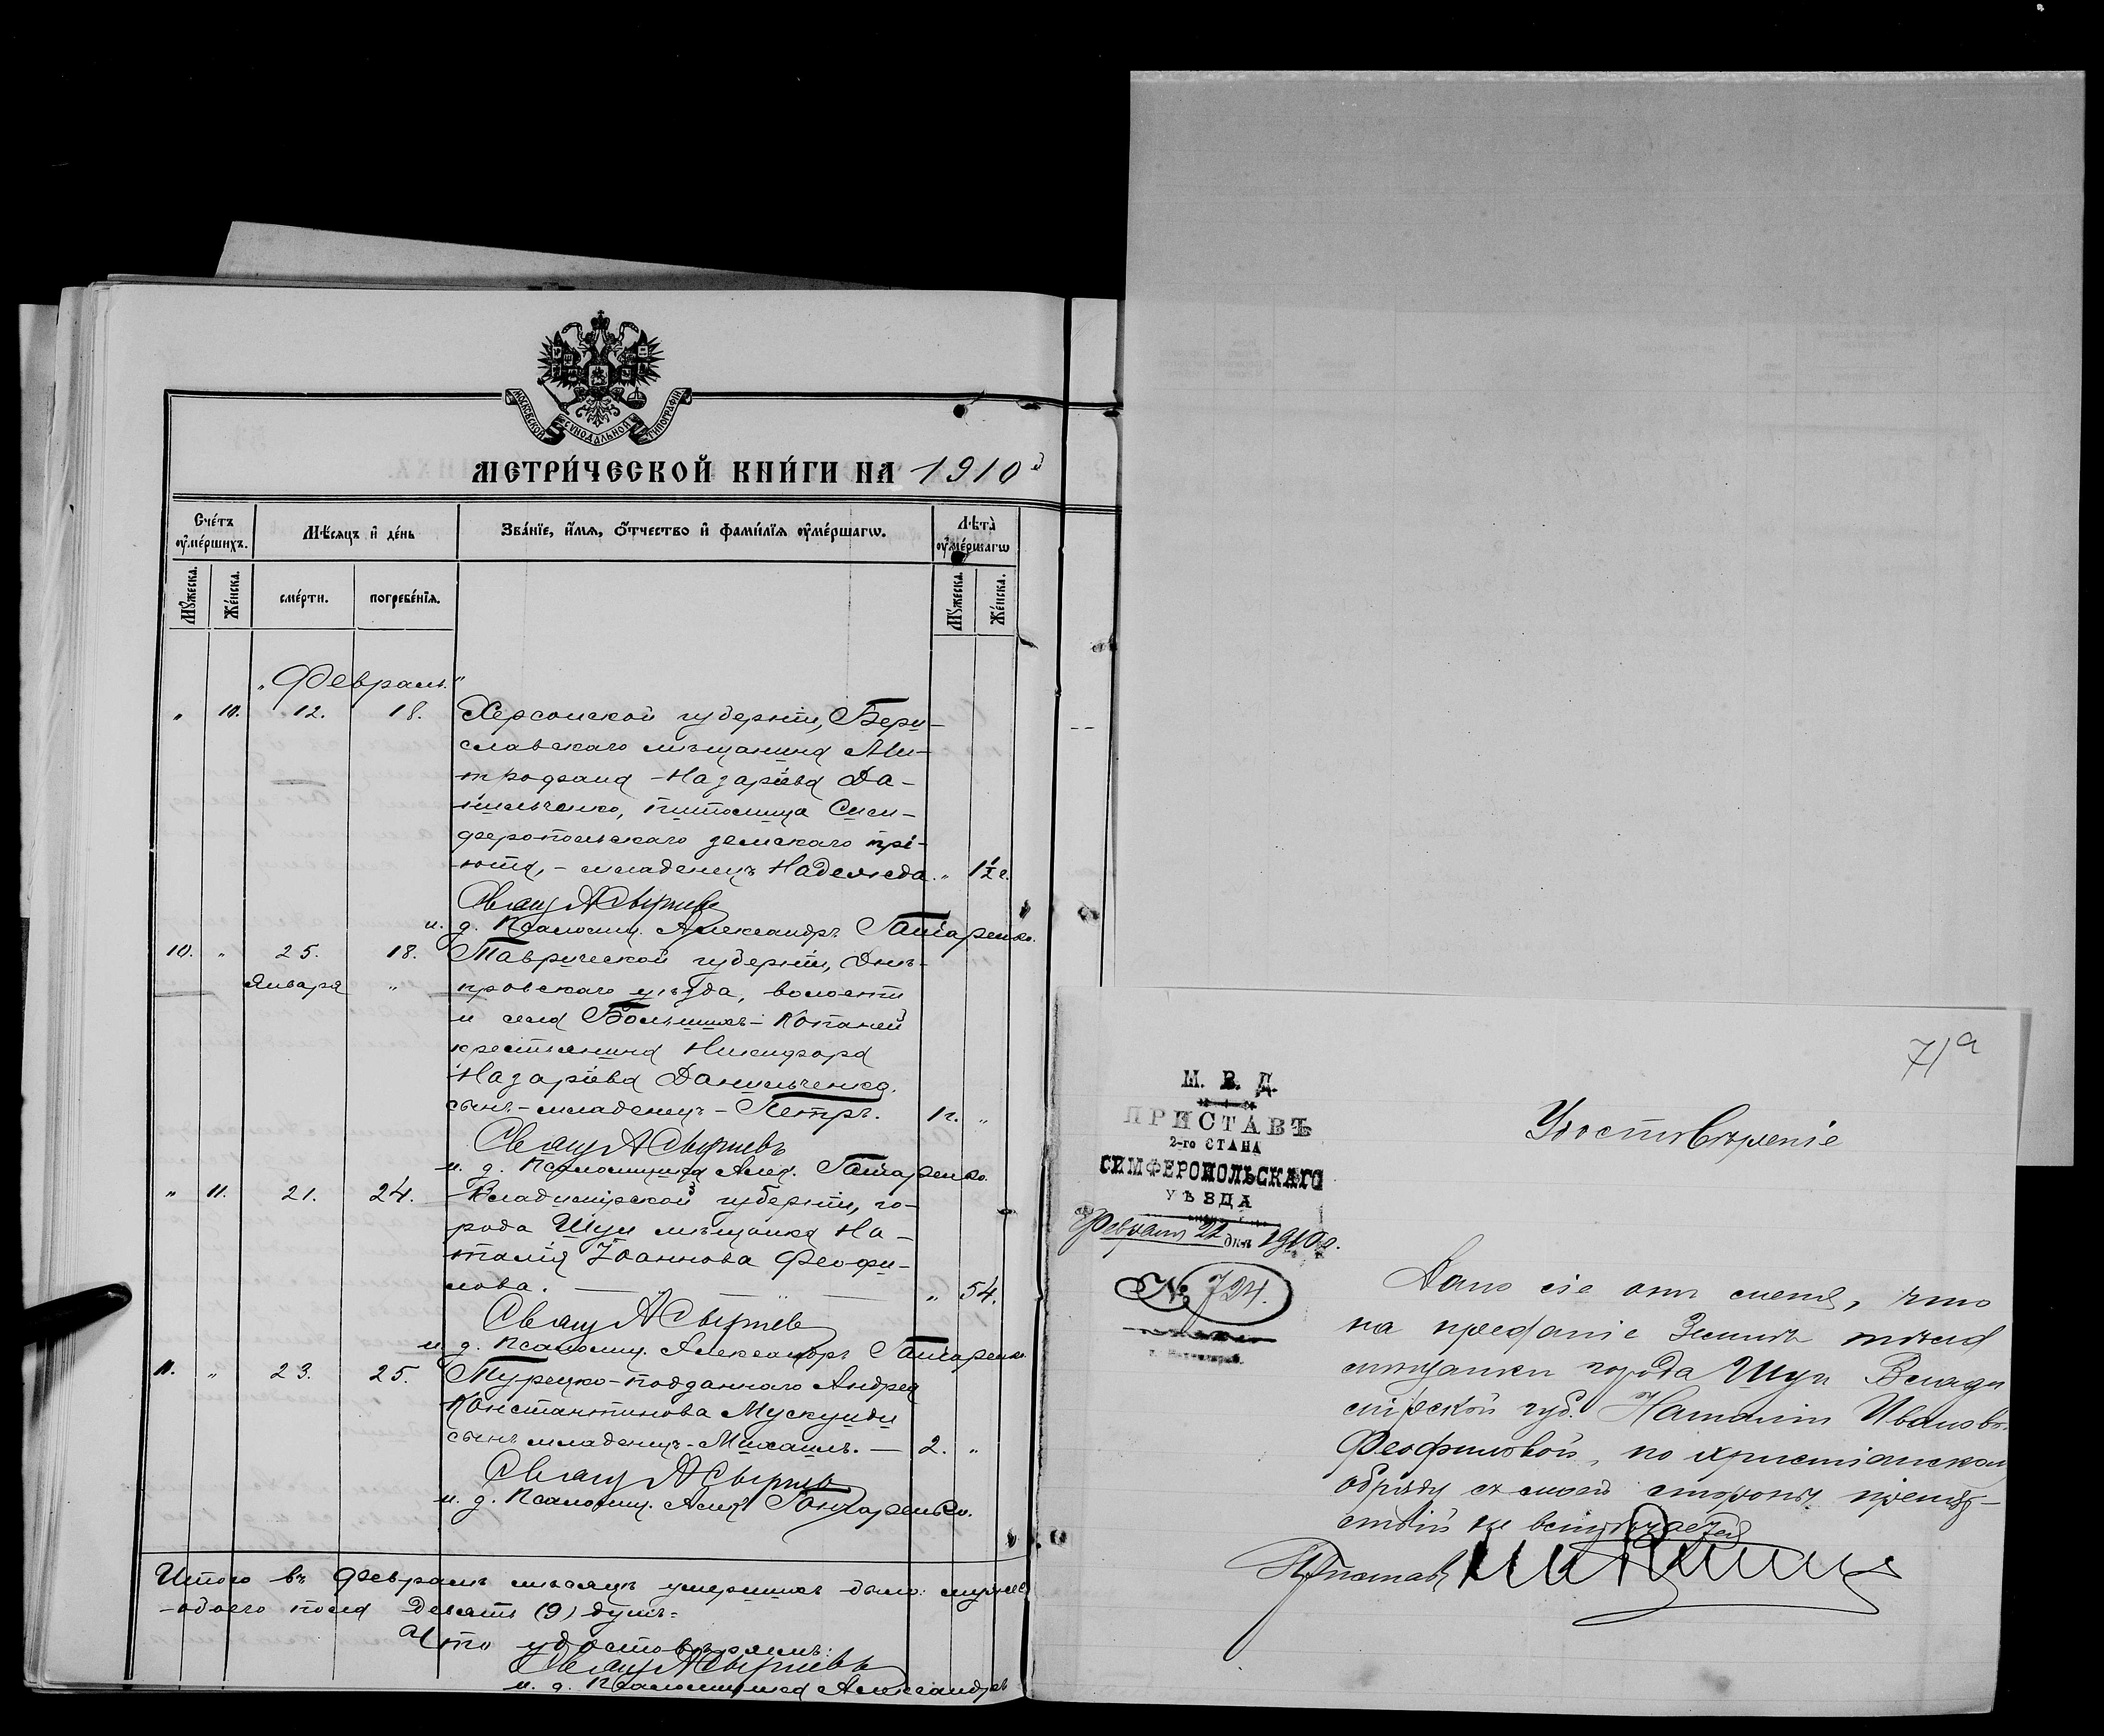 МОСКОВСКОЙ СѴНОДАЛЬНОЙ ТИПОГРАФІИ
МЕТРИ́ЧЕСКОЙ КНИ́ГИ НА 1910
Сче́тъ ᲂу҆ме́ршихъ.
Мѣ́сяцъ и҆ де́нь
Зва́нїе, и҆́мѧ, ѻ҆́тчество и҆ фами́лїѧ ᲂу҆ме́ршагѡ.
Лѣ́та ᲂу҆ме́ршагѡ
Мꙋ́жеска.
Же́нска.
сме́рти.
погребе́нїѧ.
Мꙋ́жеска.
Же́нска.
„Февраль“
„ 10. 12. 18. Херсонской губерніи, Бери-
славскаго мѣщанина Ми-
трофана Назаріева Да-
нильченко, питомица Сим-
феропольскаго земскаго прі-
юта, - младенецъ Надежда. „ 1½ г.
Свящ А Сырнев
и. д. Псаломщ. Александръ Гончаренко.
10. „ 25. 18. Таврической губерніи, Днѣ-
Января „ провскаго уѣзда, волости
и села Большихъ-Копаней
крестьянина Никифора
Назаріева Данильченка,
сынъ-младенецъ-Петръ. 1 г. „
Свящ А Сырневъ
и. д. Псаломщика Алек. Гончаренко.
„ 11. 21. 24. Владимірской губерніи, го-
рода Шуи мѣщанка На-
талія Іоаннова Феофи-
лова. „ 54.
Свящ А Сырнев
и. д. Псаломщ. Александръ Гончаренко
11. „ 23. 25. Турецко-подданнаго Андрея
Константинова Мускуиди
сынъ младенецъ-Михаилъ. — 2. „
Свящ А Сырнев
и. д. Псаломщ. Алек. Гончаренко.
Итого въ Февралѣ мѣсяцѣ умершихъ было:
-обоего пола девять (9) душъ=
Что удостовѣряемъ:
Свящ А Сырневъ
и. д. Псаломщика Александръ
71а
М. В. Д.
ПРИСТАВЪ
2-го СТАНА
СИМФЕРОПОЛЬСКАГО
УѢЗДА
Февраля 22 дня 1910 г.
№ 724.
Удостовѣреніе
Дано сіе отъ меня, что
на преданіе Землѣ тѣла
мѣщанки города Шуи Влади
мірской губ. Наталіи Ивановой
Феофиловой, по христіанскому
обряду съ моей стороны препят-
ствій не встрѣчается
Приставъ